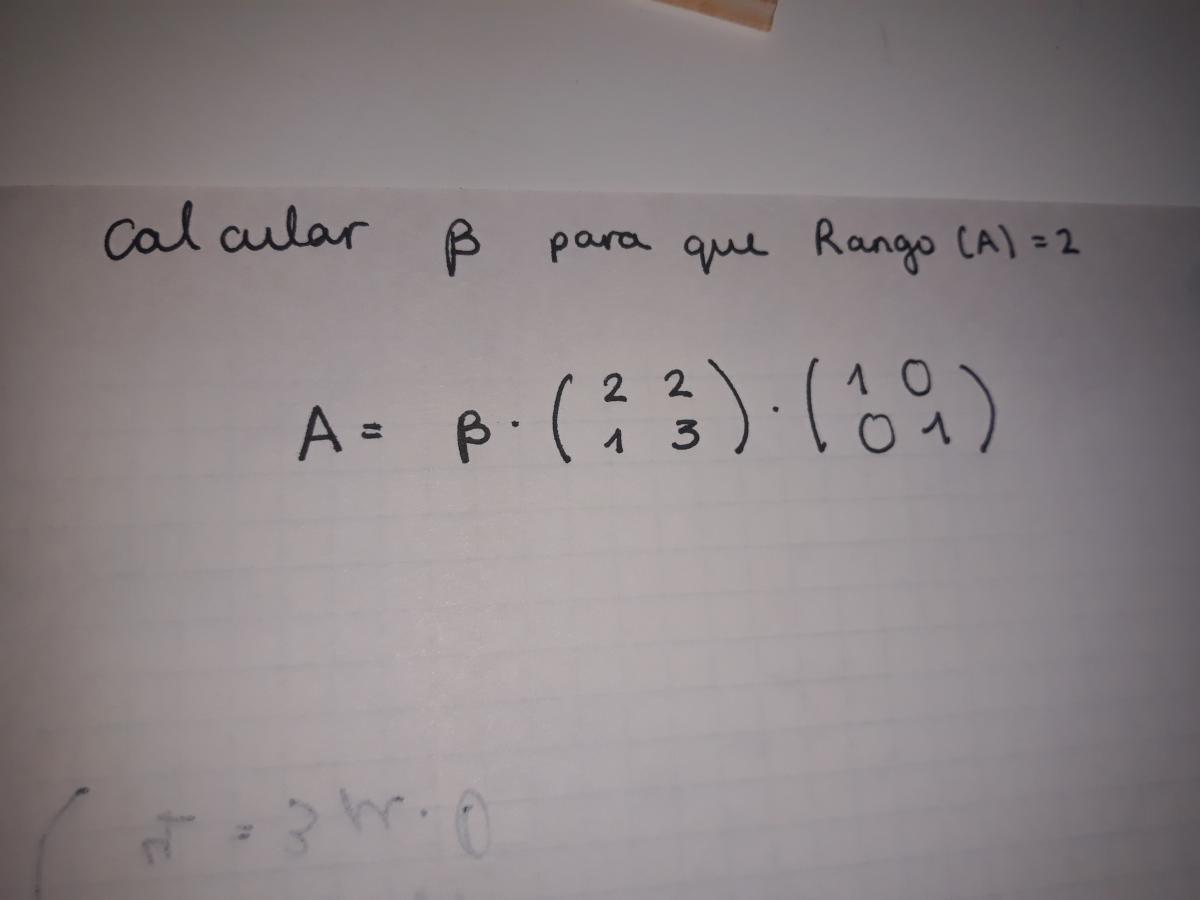 Calcular β para que Rango (A) = 2
A = β · ( 2 2 ) · ( 1 0 )
1 3 0 1